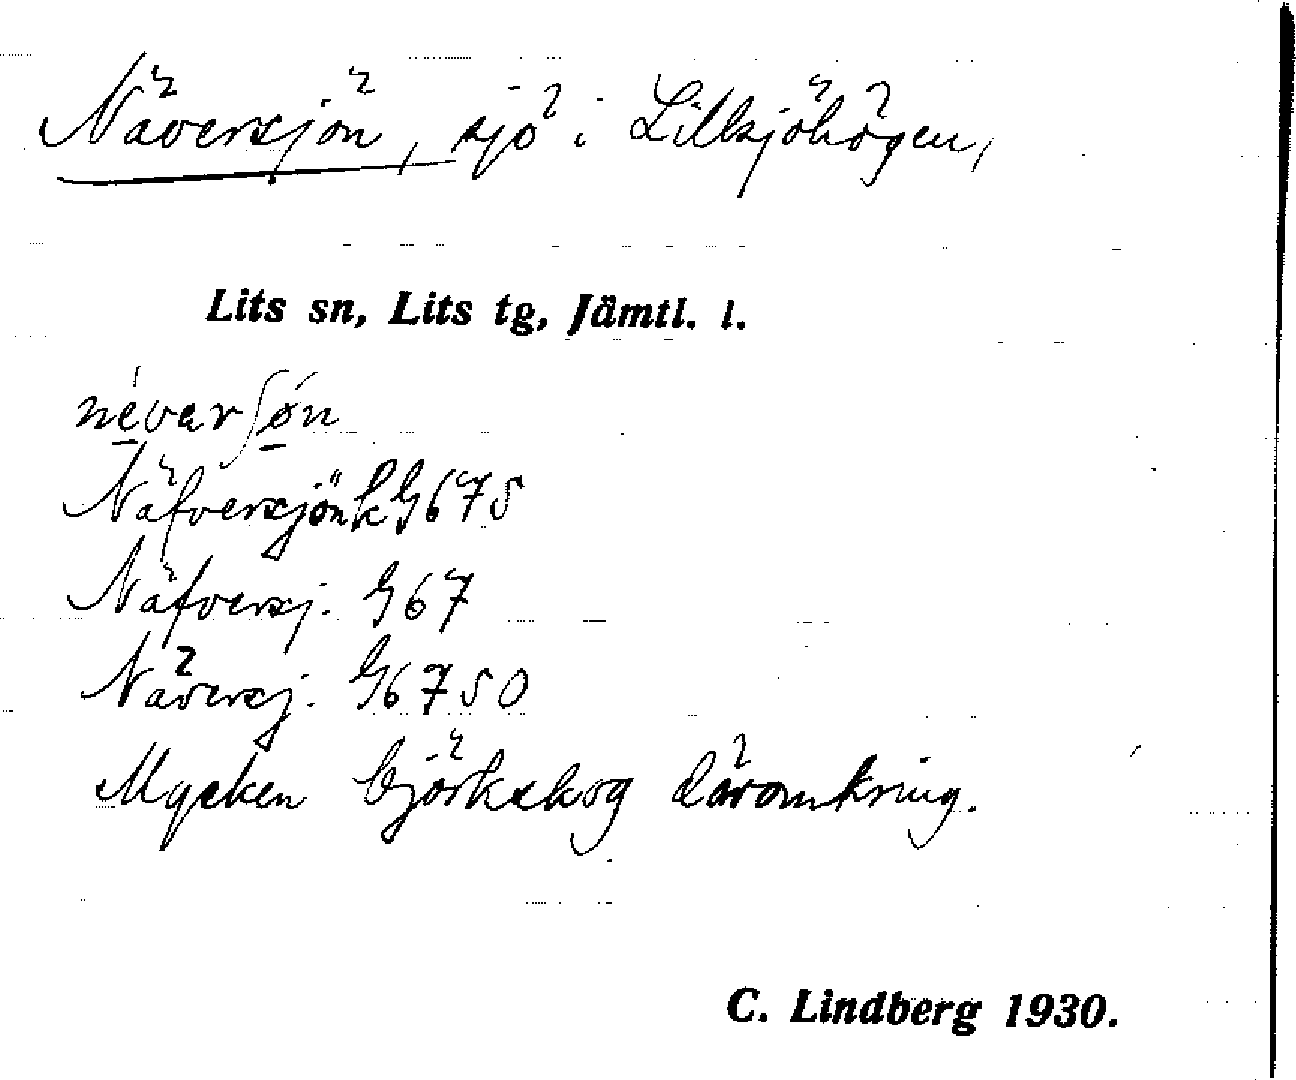 Näversjön, sjö i Lillsjöhögen,
Lits sn, Lits tg, Jämtl. l.
névarʃøn
Näfversjön k G675
Näfversj. G67
Näversj. G6750
Mycken björkskog däromkring.
C. Lindberg 1930.